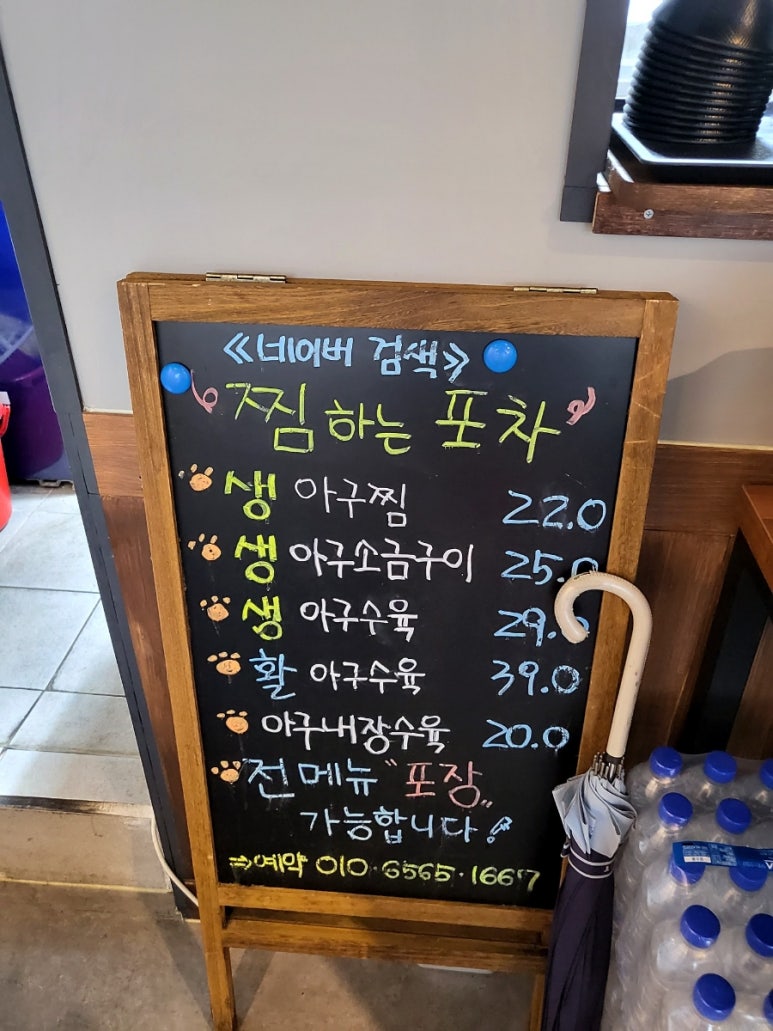 ≪네이버 검색≫
찜하는 포차
생 아구찜 22.0
생 아구소금구이 25.0
생 아구수육 29.0
활 아구수육 39.0
아구내장수육 20.0
전메뉴 "포장"
가능합니다!
⇒예약 010·6565·1667